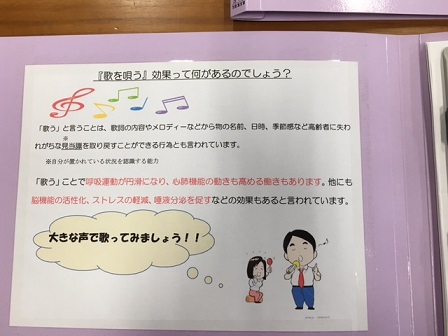 『歌を唄う』効果って何があるのでしょう？
「歌う」と言うことは、歌詞の内容やメロディーなどから物の名前、日時、季節感など高齢者に失わ
※
れがちな見当識を取り戻すことができる行為とも言われています。
※自分が置かれている状況を認識する能力
「歌う」ことで呼吸運動が円滑になり、心肺機能の動きも高める働きもあります。他にも
脳機能の活性化、ストレスの軽減、唾液分泌を促すなどの効果もあると言われています。
大きな声で歌ってみましょう！！